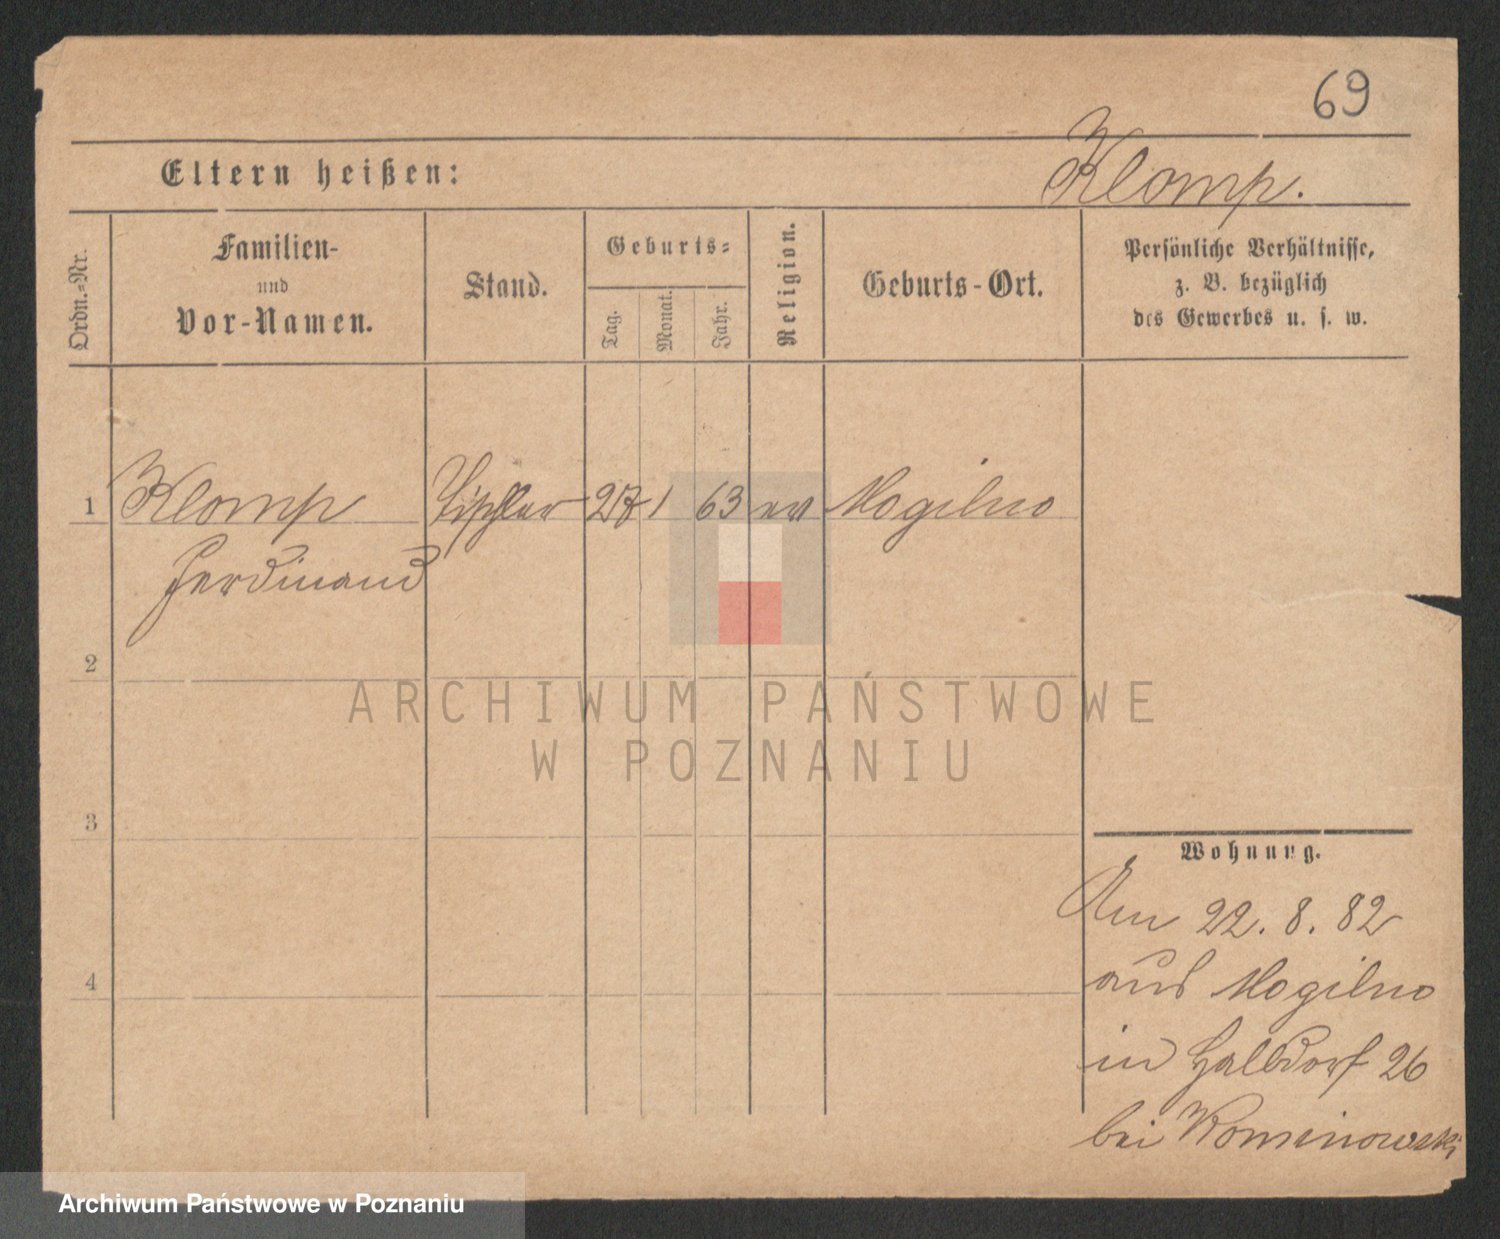 69
Klomp.
Eltern heißen:
Ordn.-Nr.
Familien-
und
Vor-Namen.
Stand.
Geburts-
Tag.
Monat.
Jahr.
Religion.
Geburts-Ort.
Persönliche Verhältnisse,
z. B. bezüglich
des Gewerbes u. s. w.
1 Klomp Tischler 1 63 ev Mogilno
Ferdinand
2
3
4
Wohnung.
Am 22. 8. 82
aus Mogilno
in Halbdorf 26
bei Kominowski
ARCHIWUM PAŃSTWOWE
W POZNANIU
Archiwum Państwowe w Poznaniu